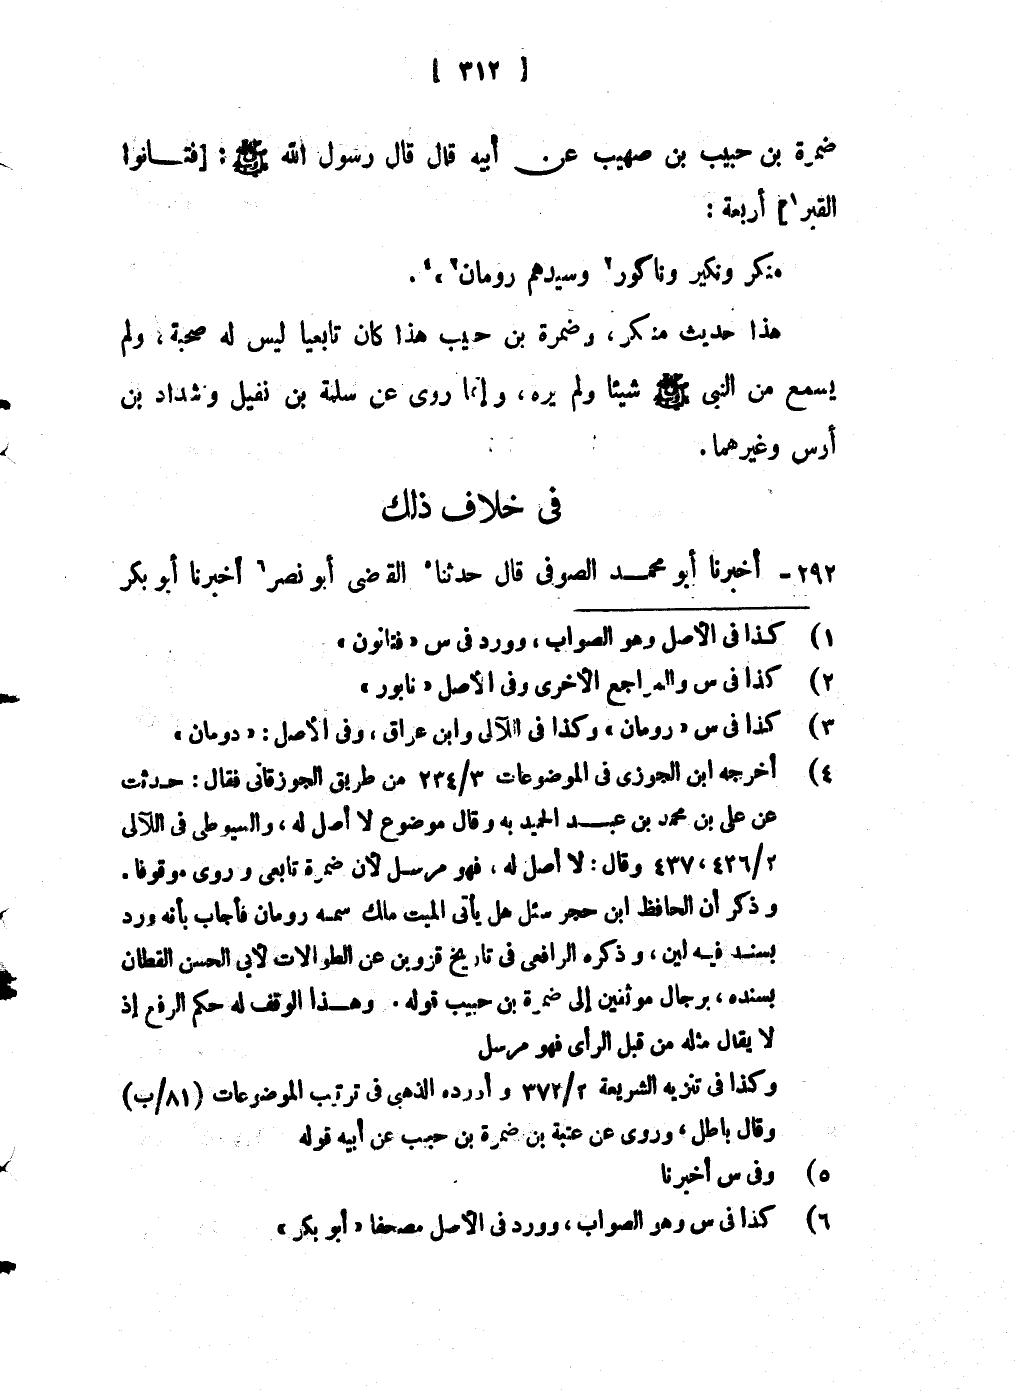 [ ٣١٢ ]
ضمرة بن حبيب بن صهيب عن أبيه قال قال رسول الله ﷺ : [فتـــانوا
القبر١] أربعة :
منكر ونكير وناكور٢ وسيدهم رومان٣،٤ .
هذا حديث منكر، وضمرة بن حبيب هذا كان تابعيا ليس له صحبة، ولم
يسمع من النبى ﷺ شيئا ولم يره، و إنما روى عن سلمة بن نفيل وشداد بن
أوس وغيرهما.
فى خلاف ذلك
٢٩٢- أخبرنا أبو محمـــد الصوفى قال حدثنا٥ القاضى أبو نصر٦ أخبرنا أبو بكر
١) كـذا فى الأصل وهو الصواب، وورد فى س « فتانون »
٢) كذا فى س والمراجع الأخرى وفى الأصل « نابور »
٣) كذا فى س « رومان » وكذا فى اللآلى وابن عراق، وفى الأصل: « دومان »
٤) أخرجه ابن الجوزى فى الموضوعات ٢٣٤/٣ من طريق الجوزقانى فقال: حـدثت
عن على بن محمد بن عبـــد الحميد به وقال موضوع لا أصل له، والسيوطى فى اللآلى
٤٣٧،٤٣٦/٢ وقال: لا أصل له، فهو مرسـل لأن ضمرة تابعى و روى موقوفا.
و ذكر أن الحافظ ابن حجر سئل هل يأتى الميت مالك سمـه رومان فأجاب بأنه ورد
بسنـد فيـه لين، و ذكره الرافعى فى تاريخ قزوين عن الطوالات لأبى الحسن القطان
بسنده، برجال موثقين إلى ضمرة بن حبيب قوله. وهـــذا الوقف له حكم الرفع إذ
لا يقال مثله من قبل الرأى فهو مرسل
وكذا فى تنزيه الشريعة ٣٧٢/٢ و أورده الذهبى فى ترتيب الموضوعات (٨١/ب)
وقال باطل، وروى عن عتبة بن ضمرة بن حبيب عن أبيه قوله
٥) وفى س أخبرنا
٦) كذا فى س وهو الصواب، وورد فى الأصل مصحفا « أبو بكر »